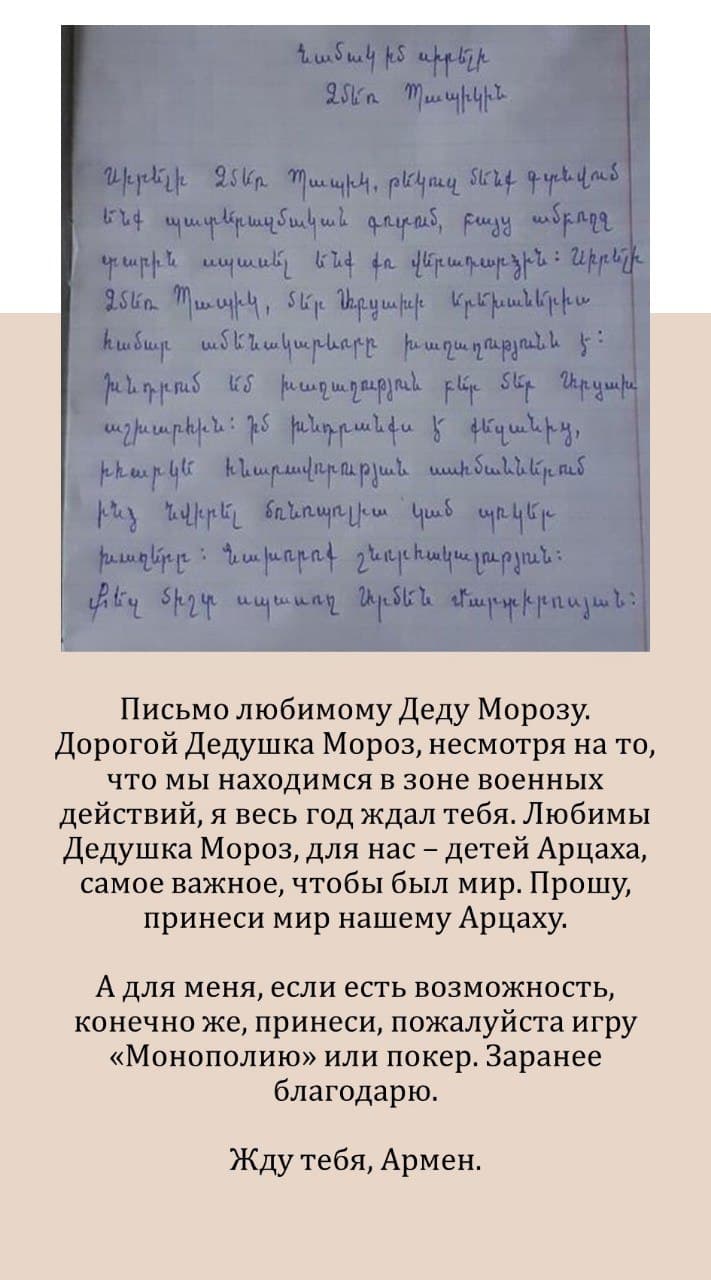 Նամակ իմ սիրելի
Ձմեռ Պապիկին
Սիրելի Ձմեռ Պապիկ, թեկուզ մենք գտնվում
ենք պատերազմական գոտում, բայց ամբողջ
տարին սպասել ենք քո վերադարձին: Սիրելի
Ձմեռ Պապիկ, մեր Արցախի երեխաներիս
համար ամենակարևորը խաղաղությունն է:
Խնդրում եմ խաղաղություն բեր մեր Արցախ
աշխարհին: Իմ խնդրանքս է քեզանից,
իհարկե հնարավորության սահմաններում
ինձ նվիրել մոնոպոլիա կամ պոկեր
խաղերը: Նախորոք շնորհակալություն:
Քեզ միշտ սպասող Արմեն Մարտիրոսյան:
Письмо любимому Деду Морозу.
Дорогой Дедушка Мороз, несмотря на то,
что мы находимся в зоне военных
действий, я весь год ждал тебя. Любимы
Дедушка Мороз, для нас – детей Арцаха,
самое важное, чтобы был мир. Прошу,
принеси мир нашему Арцаху.
А для меня, если есть возможность,
конечно же, принеси, пожалуйста игру
«Монополию» или покер. Заранее
благодарю.
Жду тебя, Армен.